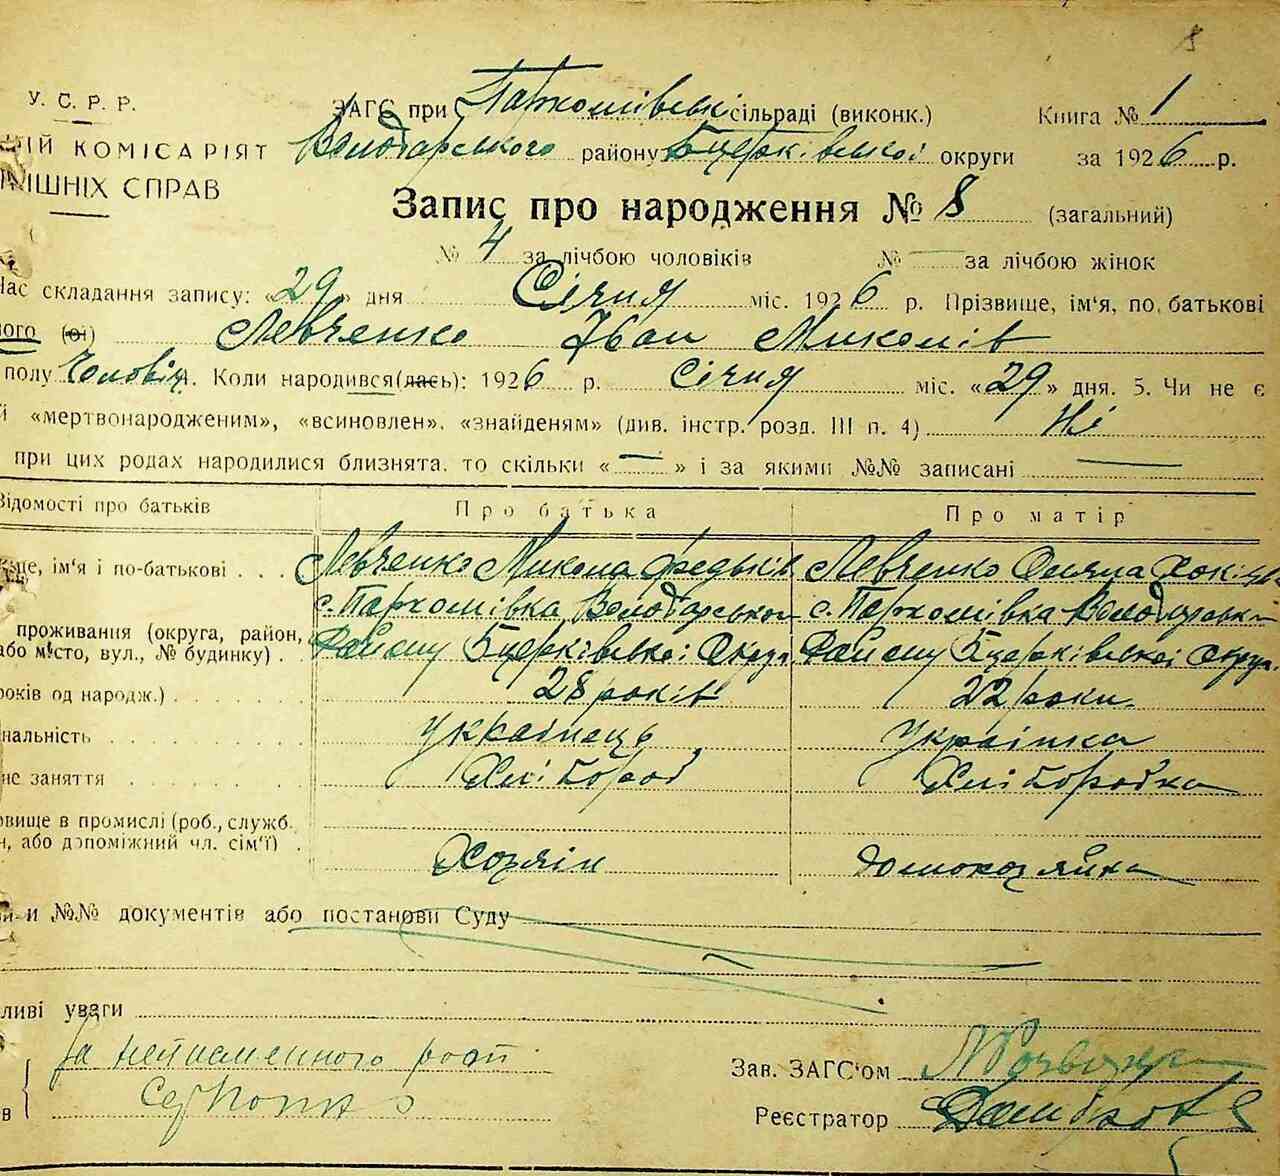 8
У. С. Р. Р.
ЗАГС при Пархомівські сільраді (виконк.) Книга № 1
КОМІСАРІЯТ Володарського району Бцерківської округи за 1926 р.
СПРАВ
Запис про народження № 8 (загальний)
№ 4 за лічбою чоловіків № — за лічбою жінок
Час складання запису: «29» дня Січня міс. 1926 р. Прізвище, ім'я, по батькові
ого (ої) Левченко Іван Миколів
полу Чоловіч. Коли народився(лась): 1926 р. Січня міс. «29» дня. 5. Чи не є
й «мертвонародженим», «всиновлен», «знайденям» (див. інстр. розд. III п. 4) Ні
при цих родах народилися близнята, то скільки « — » і за якими №№ записані —
Відомості про батьків Про батька Про матір
ім'я і по-батькові . . . Левченко Микола Федьків Левченко
с. Пархомівка Володарського с. Пархомівка Володарськ
проживання (округа, район,
або місто, вул., № будинку) . Району Бцерківської Округи Району Бцерківської Округи.
років од народж.) 28 років 22 роки
нальність Українець Українка
не заняття Хлібороб Хліборобка
овище в промислі (роб., служб.
н, або допоміжний чл. сім'ї) . Хозяін домохозяйка
и №№ документів або постанови Суду
ливі уваги
За неписьменного
Зав. ЗАГС'ом
в
Реєстратор